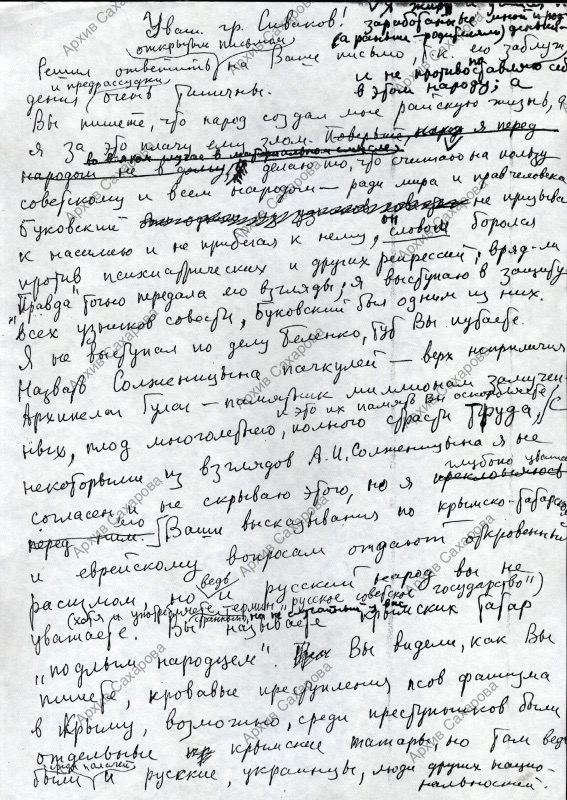 Уваж. гр. Сиваков!
я живу
заработанные мной и
(а раньше – родителями) деньги
Решил ответить открытым письмом на Ваше письмо, т.к. его заблуж-
и не противопоставляю себя
дения и предрассудки очень типичны.
в этом народу; а
Вы пишете, что народ создал мне райскую жизнь,
я за это плачу ему злом. я перед
народом не в долгу, во всяком случае в материальном смысле
делаю то, что считаю на пользу
советскому и всем народам – ради мира и прав человека
Буковский не призывал
к насилию и не прибегал к нему, он словом боролся
против психиатрических и других репрессий, вряд-ли
"Правда" точно передала его взгляды; я выступаю в защиту
всех узников совести, Буковский был одним из них.
Я не выступал по делу Беленко, тут Вы путаете.
Назвать Солженицына пачкулей – верх неприличия
Архипелаг Гулаг – памятник миллионам замучен-
и это их память Вы оскорбляете
ных, плод многолетнего, полного страсти труда, С
некоторыми из взглядов А.И. Солженицына я не
согласен и не скрываю этого, но я глубоко уважаю
преклоняюсь
перед ним. его Ваши высказывания по крымско-татарскому
и еврейскому вопросам отдают откровенным
расизмом, но ведь и русский народ вы не
(хотя и употребляете термин "русское советское государство")
уважаете. Вы называете крымских татар
"подлым народцем". Вы видели, как Вы
пишете, кровавые преступления псов фашизма
в Крыму, возможно, среди преступников были
отдельные крымские татары, но там ведь
были среди палачей и русские, украинцы, люди других нацио-
нальностей.
Архив Сахарова